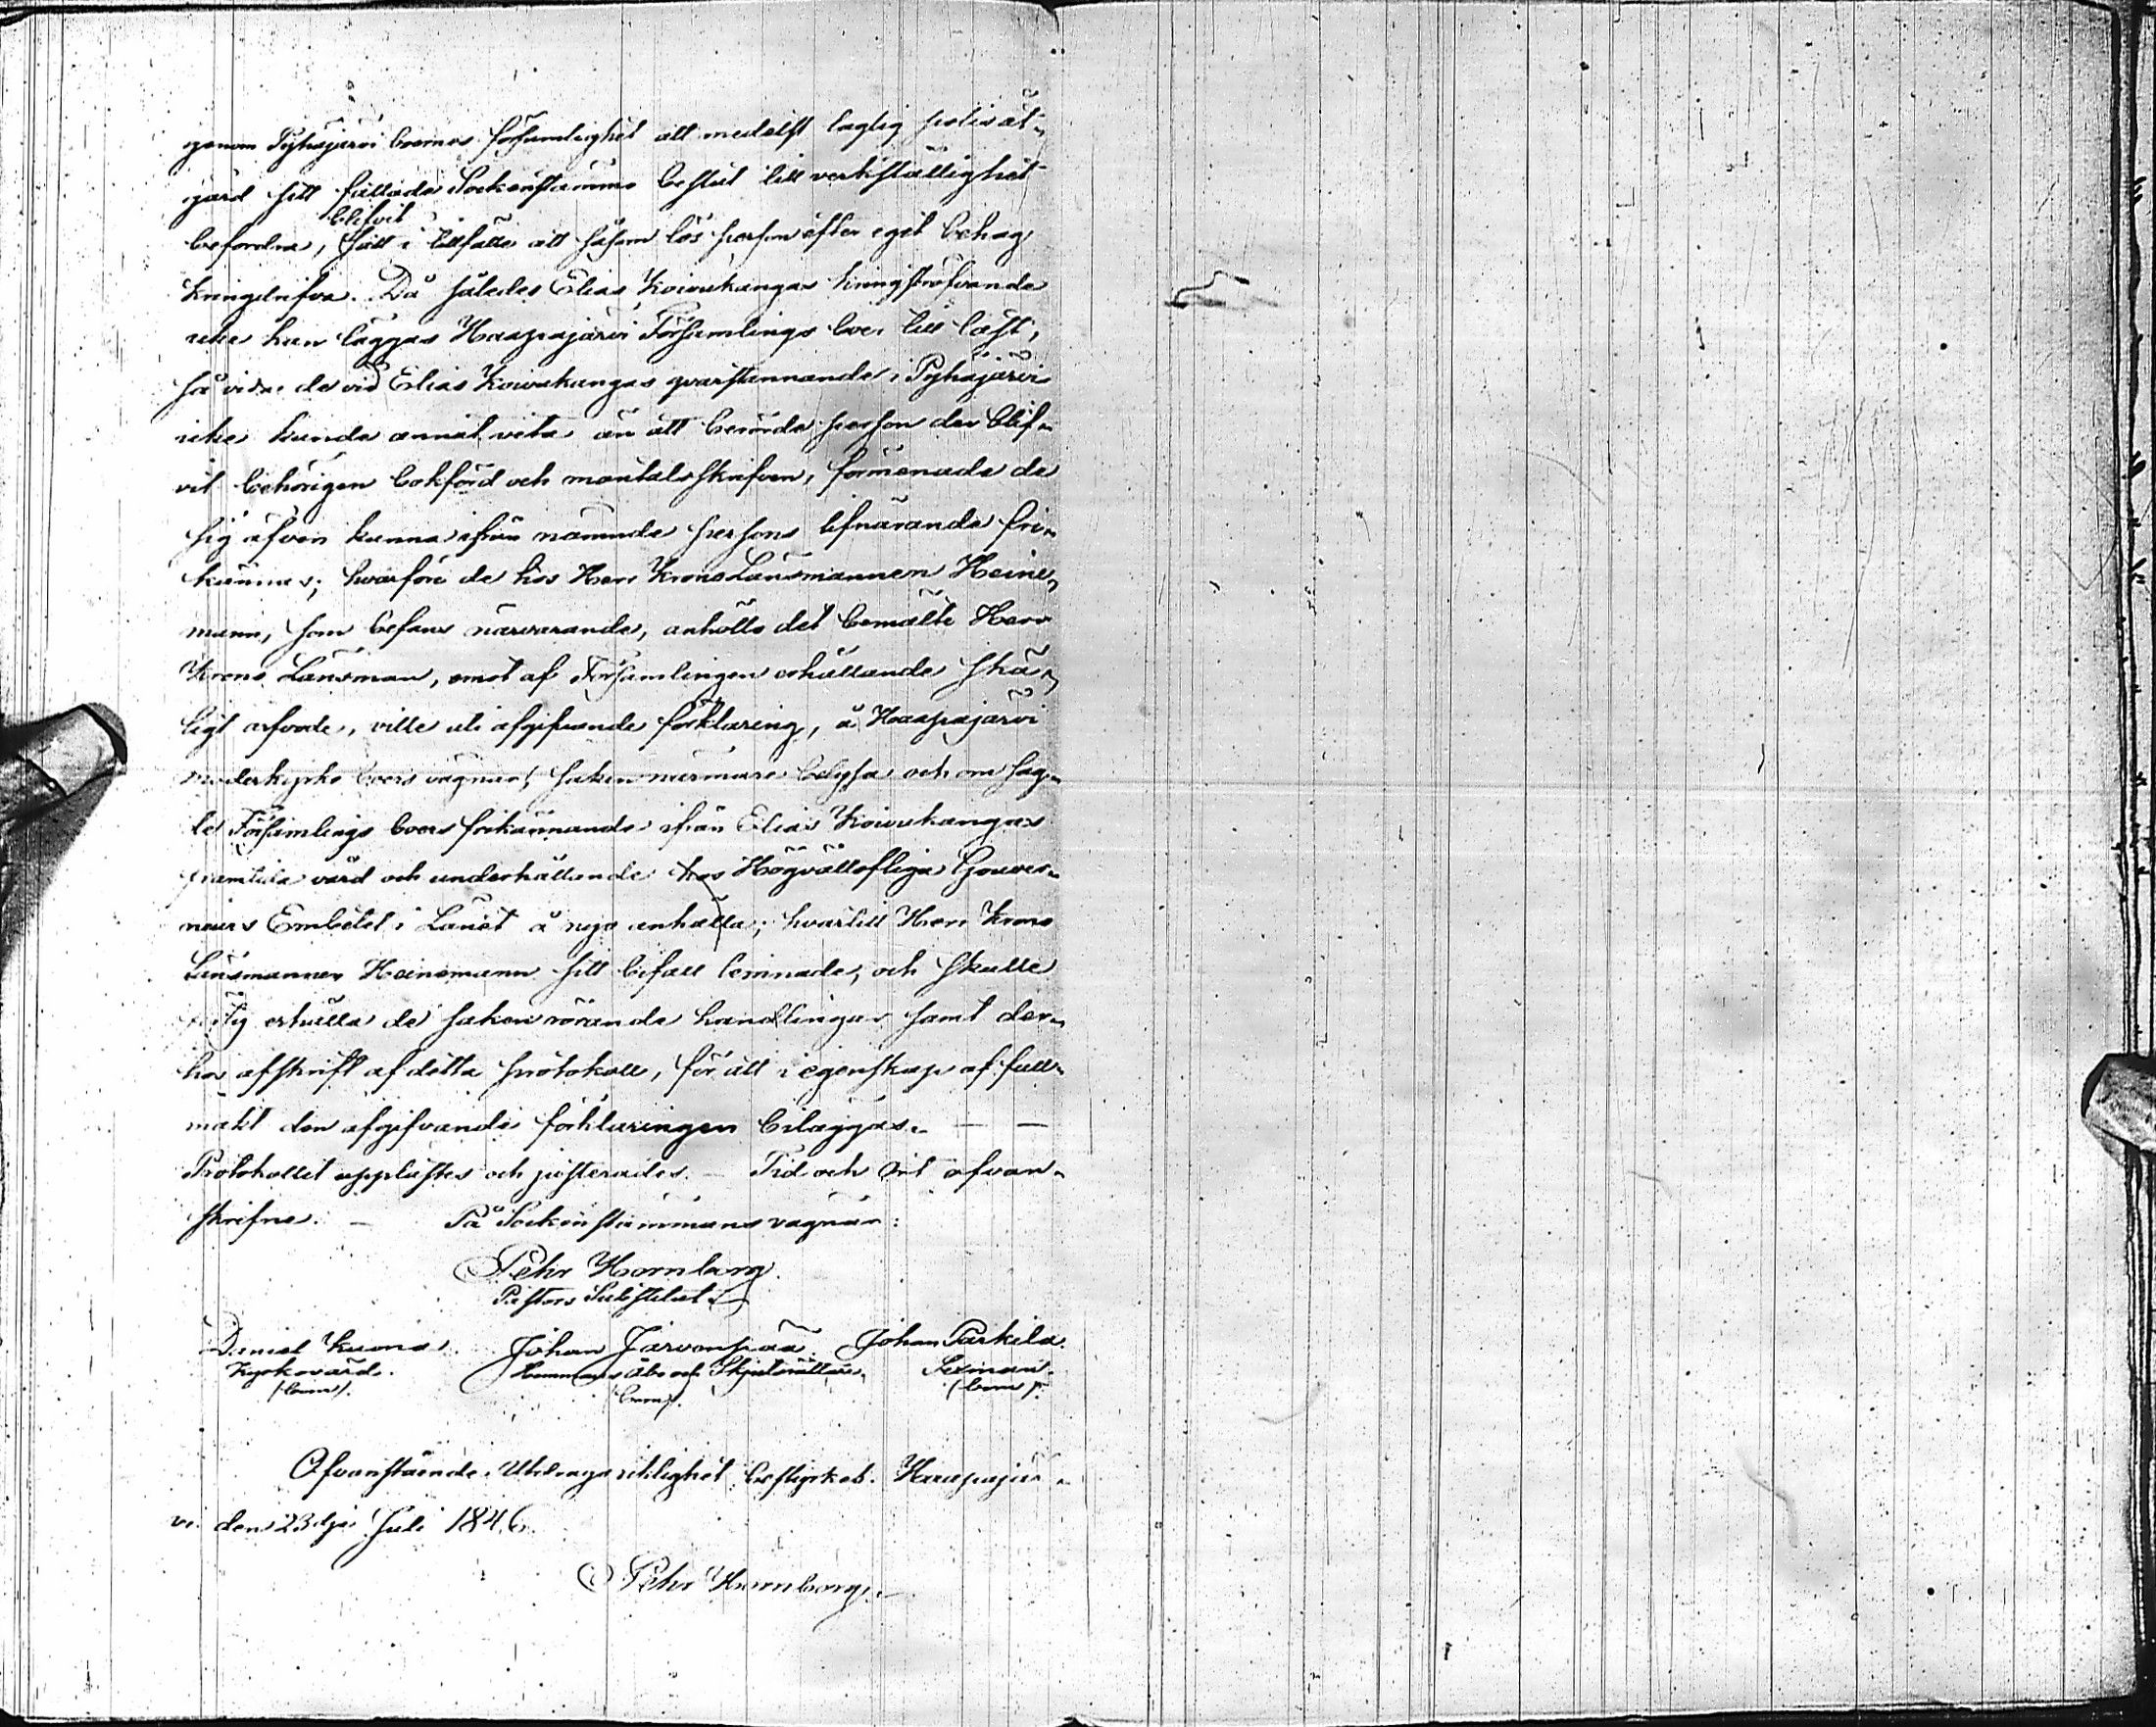 genom Pyhäjärvi boernes försumlighet att medelst laglig polis åt-
gärd sitt fattade Sockenstämmo beslut till verkställighet
blifvit
befordra, satt i tillfälle att såsom lös person efter eget behag
kringdrifva. Då således Elias Koivukangas kringströfvande
icke kan läggas Haapajärvi Församlings boer till last,
så vida de vid Elias Koivukangas qvarstannande i Pyhäjärvi
icke kunde annat veta än att berörde person der blif-
vit behörigen bokförd och mantalsskrifven, förmenade de
sig äfven kunna ifrån nämnde persons lifnärande fri-
kännas; hvarföre de hos Herr Krono Länsmannen Heine-
mann, som befans närvarande, anhöllo det bemälte Herr
Krono Länsman, emot af Församlingen erhållande skä-
ligt arfvode, ville uti afgifvande förklaring, å Haapajärvi
moderkyrko boers vägnar, saken närmare belysa och om sag-
de Församlings boers frikännande ifrån Elias Koivukangas
framtida vård och underhållande hos Högvällofliga Gouver-
neurs Embetet i Länet å nyo anhålla; hvartill Herr Krono
Länsmannen Heinemann sitt bifall lemnade, och skulle
erhålla de saken rörande handlingar samt der-
hos afskrift af detta protokoll, för att i egenskap af full-
makt den afgifvande förklaringen biläggas. — —
Protokollet upplästes och justerades. — Tid och Ort ofvan-
skrifne. — På Sockenstämmans vägnar:
Pehr Hornborg.
Pastors Substitut
Daniel Kuona. Johan Järvenpää. Johan Parkila.
Kyrkovärd. Hemmans Åbo och Skjutsrättare. Sexman.
(bom). (bom). (bom).
Ofvanstående Utdrags riktighet bestyrkes. Haapajär-
vi den 23dje Juli 1846.
Pehr Hornborg.